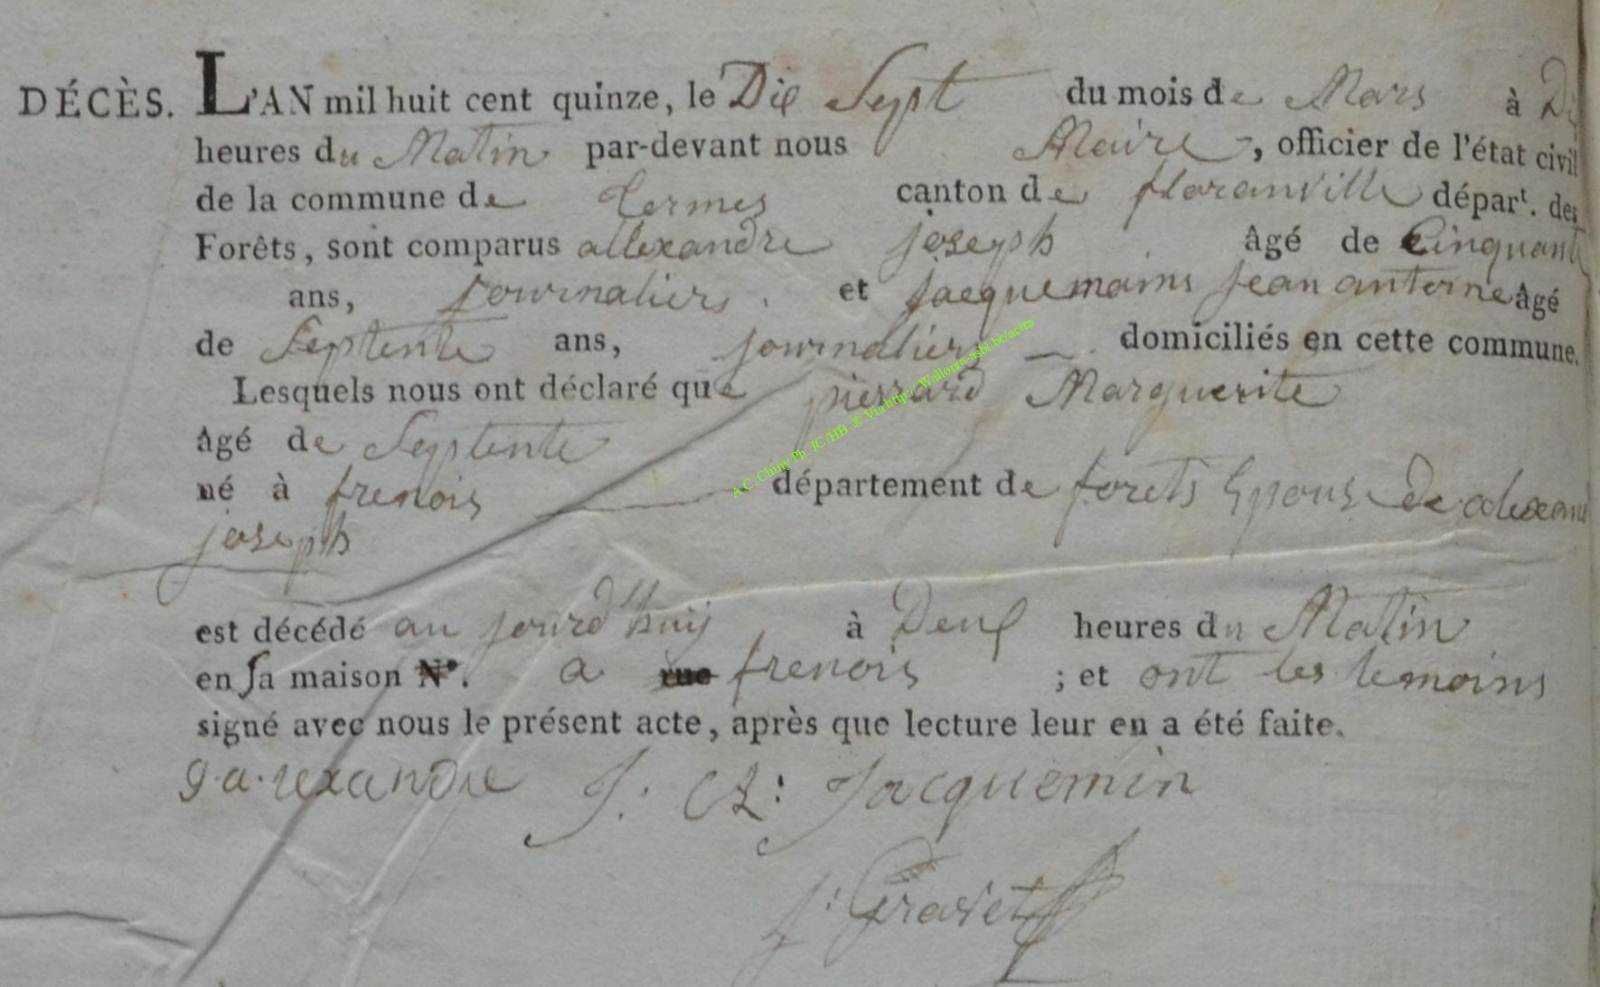 DÉCÈS. L'AN mil huit cent quinze, le Dix Sept du mois de Mars à
heures du Matin par-devant nous Maire, officier de l'état civil
de la commune de termes canton de floranville départ. des
Forêts, sont comparus allexandre joseph âgé de Cinquant
ans, journaliers. et jacquemains jean antoine âgé
de Septente ans, journaliers domiciliés en cette commune.
Lesquels nous ont déclaré que pierrard Marguerite
âgé de Septente
né à frenois département de forets Epouse de alexand
joseph
est décédé au jourd'huij à Deux heures du Matin
en sa maison N°. a rue frenois ; et ont les temoins
signé avec nous le présent acte, après que lecture leur en a été faite.
J: Jacquemin